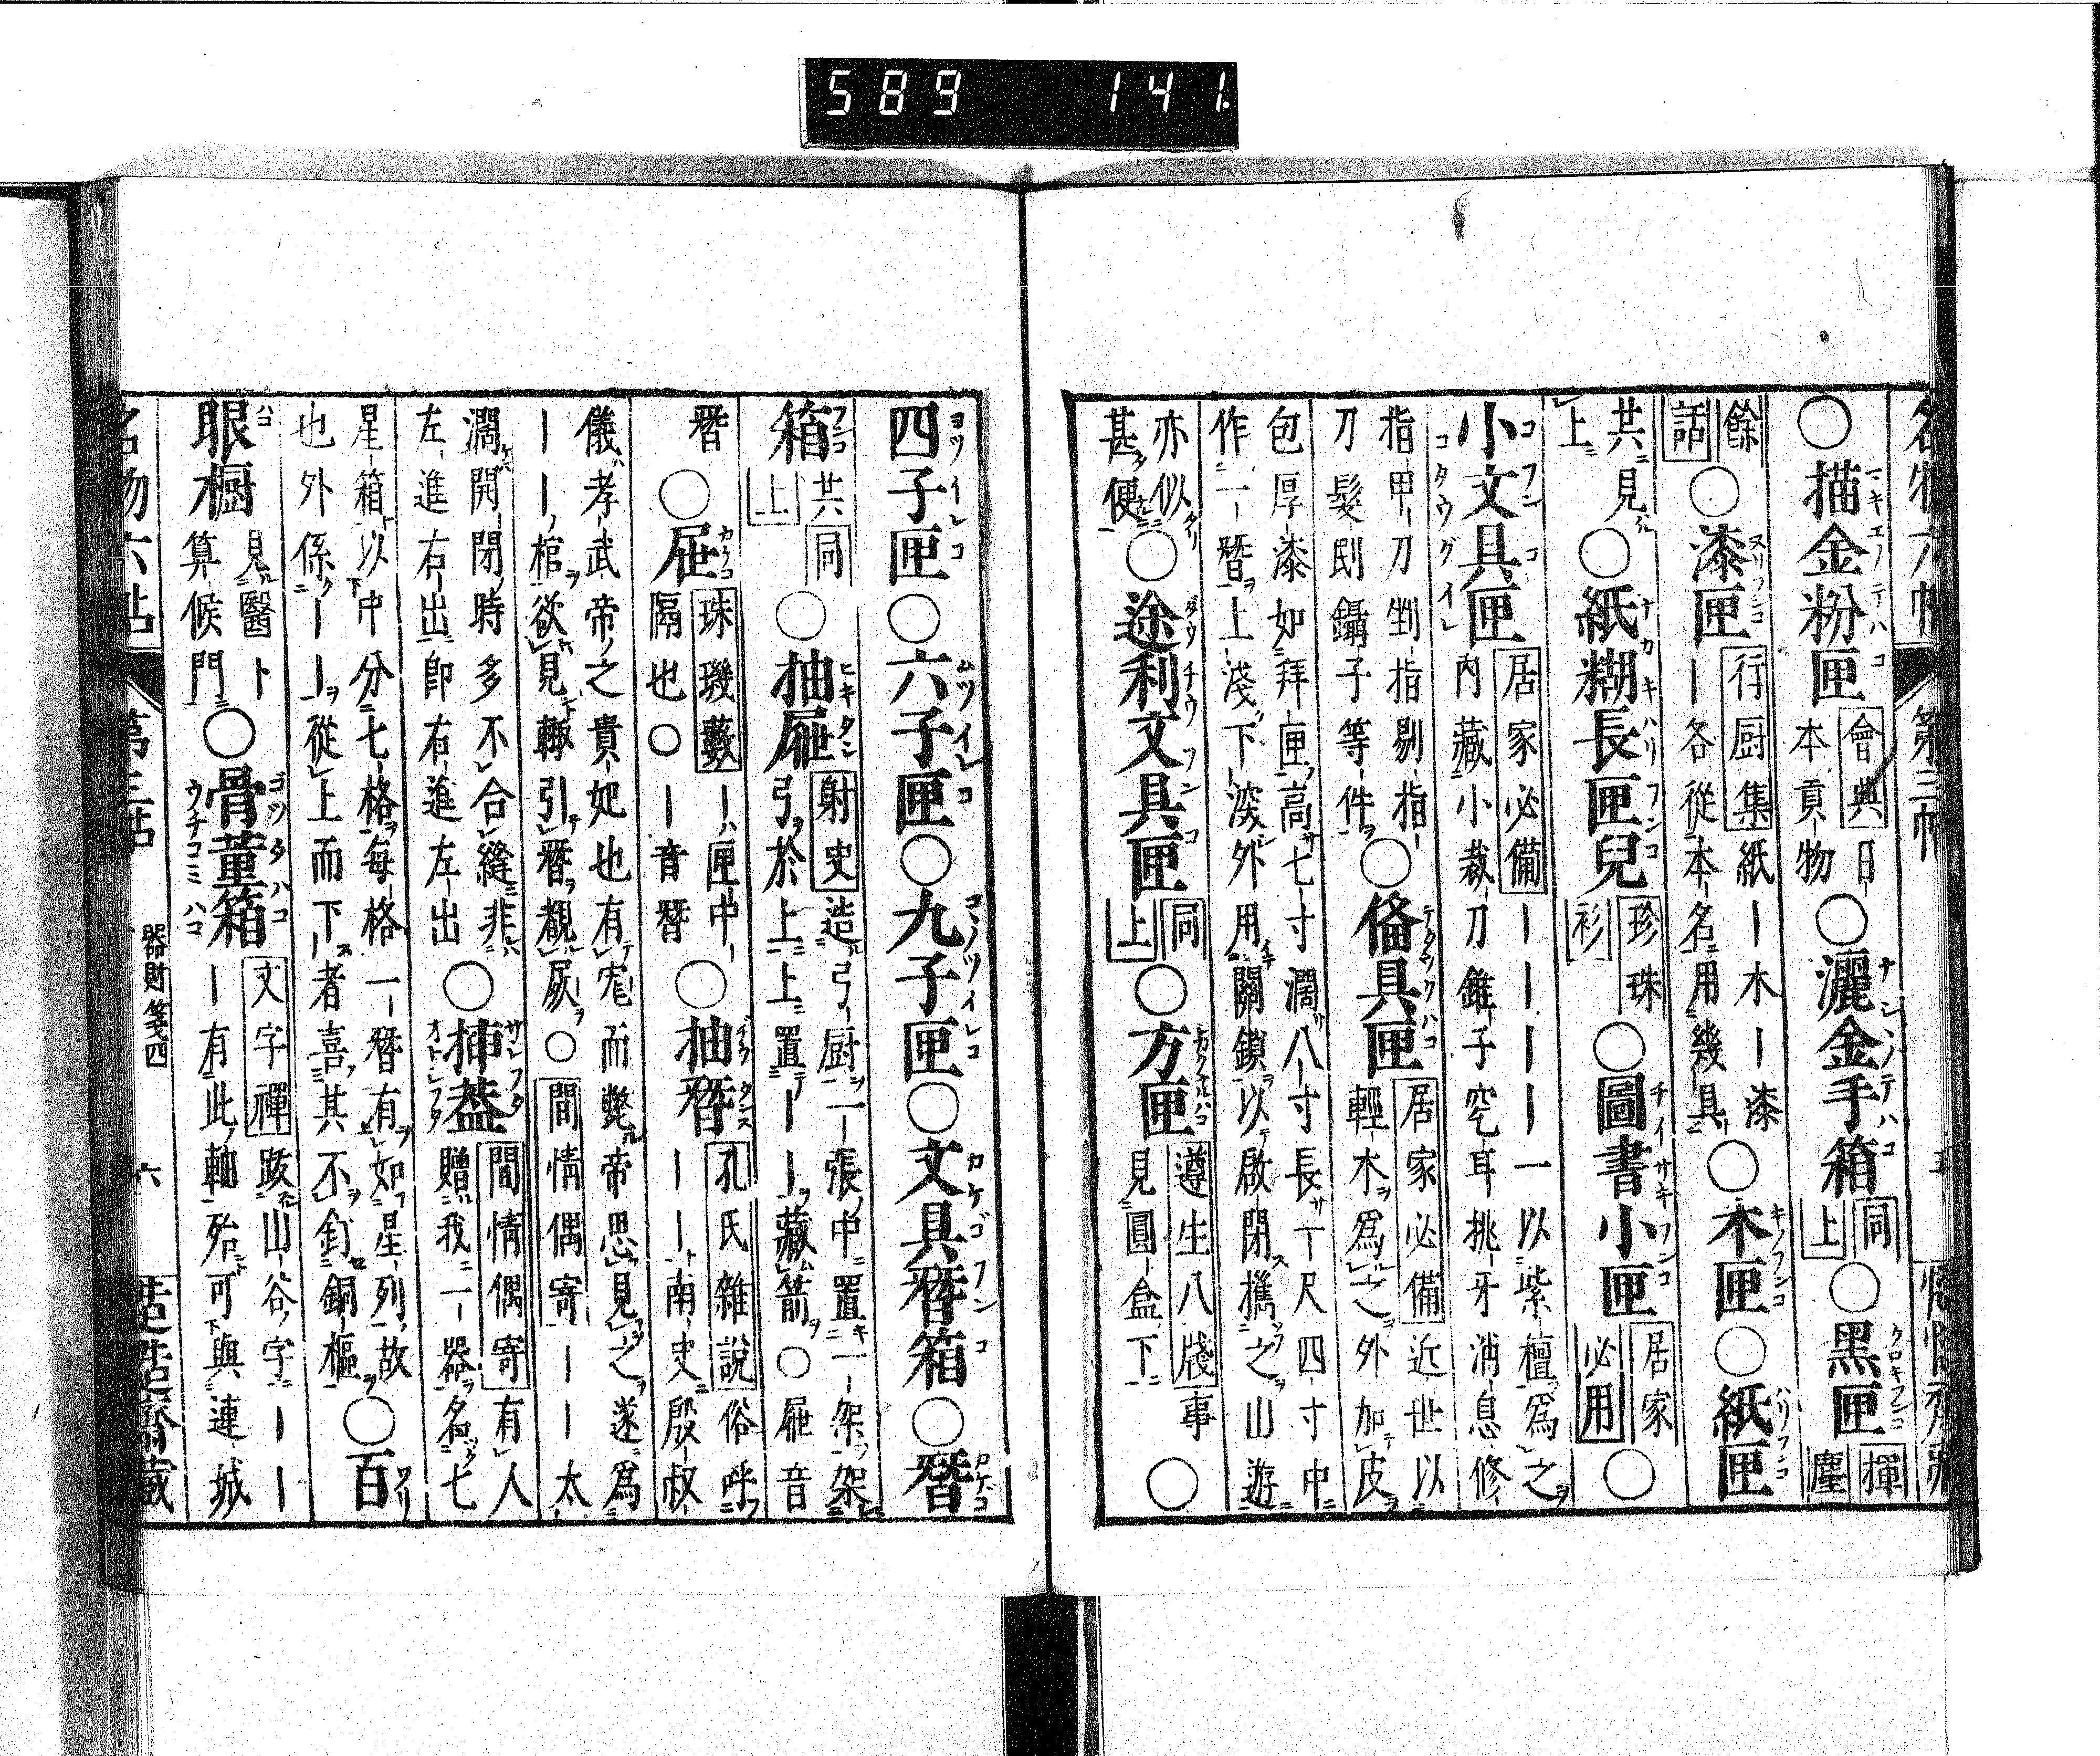 589 141.
名物六帖 第三帖
○描金粉匣 會典 日本貢物 ○灑金手箱 同上 ○黑匣 揮麈
餘話 ○漆匣 行厨集 紙ー木ー漆ー各從本名用幾具 ○木匣 ○紙匣
共見上 ○紙糊長匣兒 珍珠衫 ○圖書小匣 居家必用 ○
小文具匣 居家必備 ーーーー一以紫檀爲之內藏小裁刀錐子穵耳挑牙消息修
指甲刀剉指剔指刀髮刡鑷子等件 ○俻具匣 居家必備 近世以輕木爲之外加皮
包厚漆如拜匣高七寸濶八寸長一尺四寸中作一暦上淺下深外用關鎖以啟閉擕之山遊
亦似甚便 ○途利文具匣 同上 ○方匣 遵生八牋 事見圓盒下 ○
四子匣○六子匣○九子匣○文具暦箱○暦
箱 共同上 ○抽屜 射史 造弓厨一張中置一架架弓於上上置ーー藏箭○屜音
暦 ○屉 珠璣藪 ー匣中隔也○ー音暦 ○抽暦 孔氏雜說 俗呼ーー南史殷叔
儀孝武帝之貴妃也有寵而斃帝思見之遂爲ーー棺欲見輙引暦覩屍○間情偶寄ーー太
濶開閉時多不合縫非左進右出卽右進左出 ○揷蓋 間情偶寄 有人贈我一器名七
星箱以中分七格每格一暦有如星列故也外係ーー從上而下者喜其不釘銅樞 ○百
眼橱 見醫卜算候門 ○骨董箱 文字禪 跋山谷字ーーー有此軸殆可與連城
名物六帖 第三帖 器財箋四 六